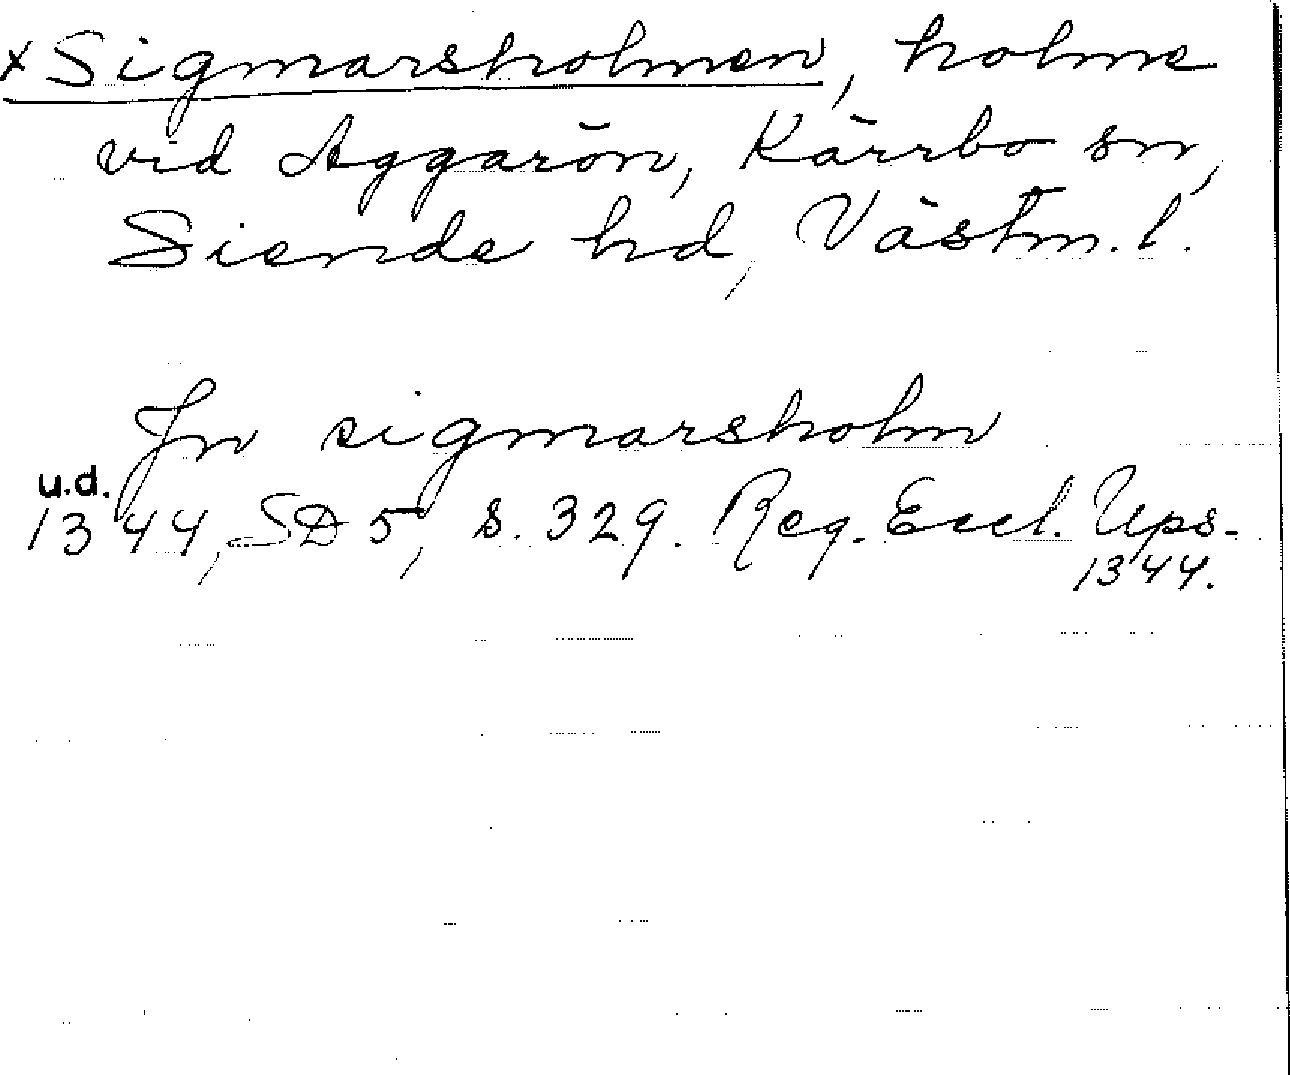 x Sigmarsholmen, holme
vid Aggarön, Kärrbo sn,
Siende hd, Västm. l.
Jn sigmarsholm
u.d.
1344, SD 5, s. 329. Reg. Eccl. Ups.
1344.